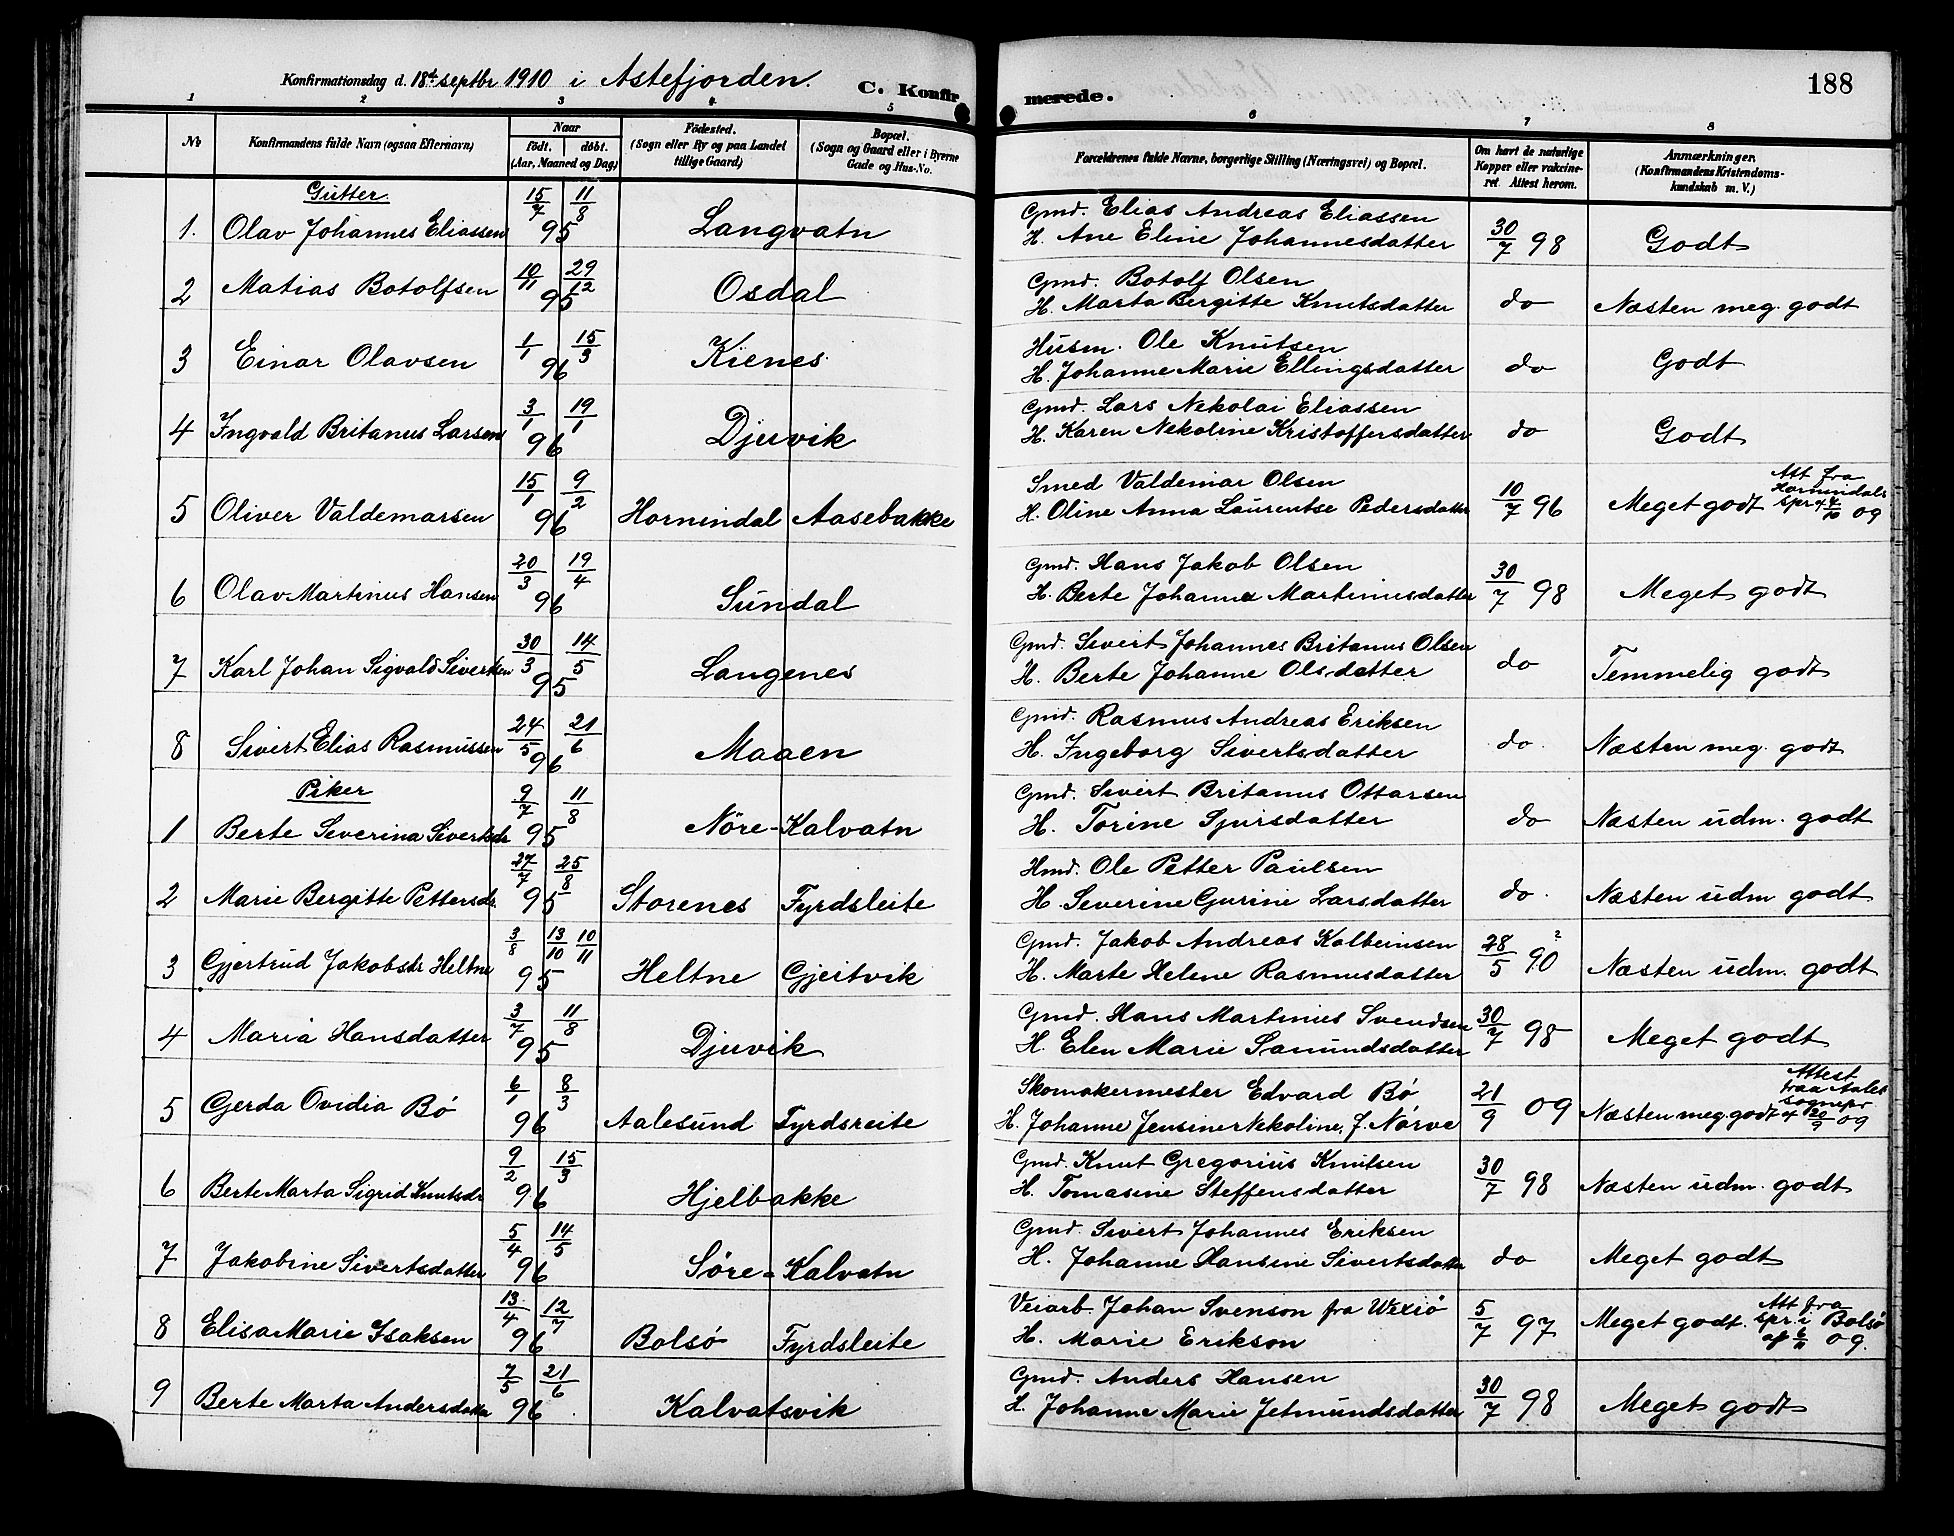 Konfirmationsdag d. 18de septbr 1910 i Astefjorden. C. Konfirmerede. 188
1 2 3 4 5 6 7 8
No Konfirmandens fulde Navn (ogsaa Efternavn) Naar født. døbt. (Aar, Maaned og Dag) Fødested. (Sogn eller By og paa Landet tillige Gaard) Bopæl. (Sogn og Gaard eller i Byerne Gade og Hus-No. Forældrenes fulde Navne, borgerlige Stilling (Næringsvei) og Bopæl. Om havt de naturlige Kopper eller vakcineret. Attest herom. Anmærkninger. (Konfirmandens Kristendomskundskab m. V.)
Gutter
1. Olav Johannes Eliassen 15/7 11/8 95 Langvatn Gmd. Elias Andreas Eliassen
H. Ane Eline Johannesdatter 30/7 98 Godt
2 Matias Botolfsen 10/11 29/12 95 Osdal Gmd. Botolf Olsen
H. Marta Bergitte Knutsdatter do Næsten meg. godt
3 Einar Olavsen 1/1 15/3 96 Kienes Husm. Ole Knutsen
H. Johanne Marie Ellingsdatter do Godt
4 Ingvald Britanus Larsen 3/1 19/1 96 Djuvik Gmd. Lars Nekolai Eliassen
H. Karen Nekoline Kristoffersdatter do Godt
5 Oliver Valdemarsen 15/1 9/2 96 Hornindal Aasebakke Smed Valdemar Olsen
H. Oline Anna Laurentse Pedersdatter 10/7 96 Meget godt Att fra
Hornindals
spr. 4/10 09
6 Olav Martinus Hansen 20/3 19/4 96 Sundal Gmd. Hans Jakob Olsen
H. Berte Johanna Martinusdatter 30/7 98 Meget godt
7 Karl Johan Sigvald Sivertsen 30/3 14/5 95 Langenes Gmd. Sivert Johannes Britanus Olsen
H. Berte Johanne Olsdatter do Temmelig godt
8 Sivert Elias Rasmussen 24/5 21/6 96 Maaen Gmd. Rasmus Andreas Eriksen
H. Ingeborg Sivertsdatter do. Næsten meg. godt
Piker
1 Berte Severina Sivertsdr 9/7 11/8 95 Nøre-Kalvatn Gmd. Sivert Britanus Ottarsen
H. Torine Sjursdatter do Næsten udm. godt
2 Marie Bergitte Pettersdr. 27/7 25/8 95 Storenes Fyrdsleite Hmd. Ole Petter Paulsen
H. Severine Gurine Larsdatter do. Næsten udm godt
3 Gjertrud Jakobsdr Heltne 3/8 13/10 10/11 95 Heltne Gjeitvik Gmd. Jakob Andreas Kolbeinsen
H. Marte Helene Rasmusdatter 28/5 90 ? Næsten udm. godt
4 Maria Hansdatter 3/7 11/8 95 Djuvik Gmd. Hans Martinus Svendsen
H. Elen Marie Samundsdatter 30/7 98 Meget godt
5 Gerda Ovidia Bø 6/1 8/3 96 Aalesund Fyrdsreite Skomakermester Edvard Bø
H. Johanne Jensine Nekoline, f. Nørve 21/9 09 Næsten meg. godt Attest
fraa Aales
sognepr.
20/9 09
6 Berte Marta Sigrid Knutsdr 9/2 15/3 96 Hjelbakke Gmd. Knut Gregorius Knutsen
H. Tomasine Steffensdatter 30/7 98 Næsten udm. godt
7 Jakobine Sivertsdatter 5/4 14/5 96 Søre-Kalvatn Gmd. Sivert Johannes Eriksen
H. Johanne Hansine Sivertsdatter do Meget godt
8 Elisa Marie Isaksen 13/4 12/7 96 Bolsø Fyrdsleite Veiarb. Johan Svenson fra Wexiø
H. Marie Erikson 5/7 97 Meget godt. Att fra
spr. i Bolsø
af 6/11 09.
9 Berte Marta Andersdatter 7/5 21/6 96 Kalvatsvik Gmd. Anders Hansen
H. Johanne Marie Jetmundsdatter 30/7 98 Meget godt